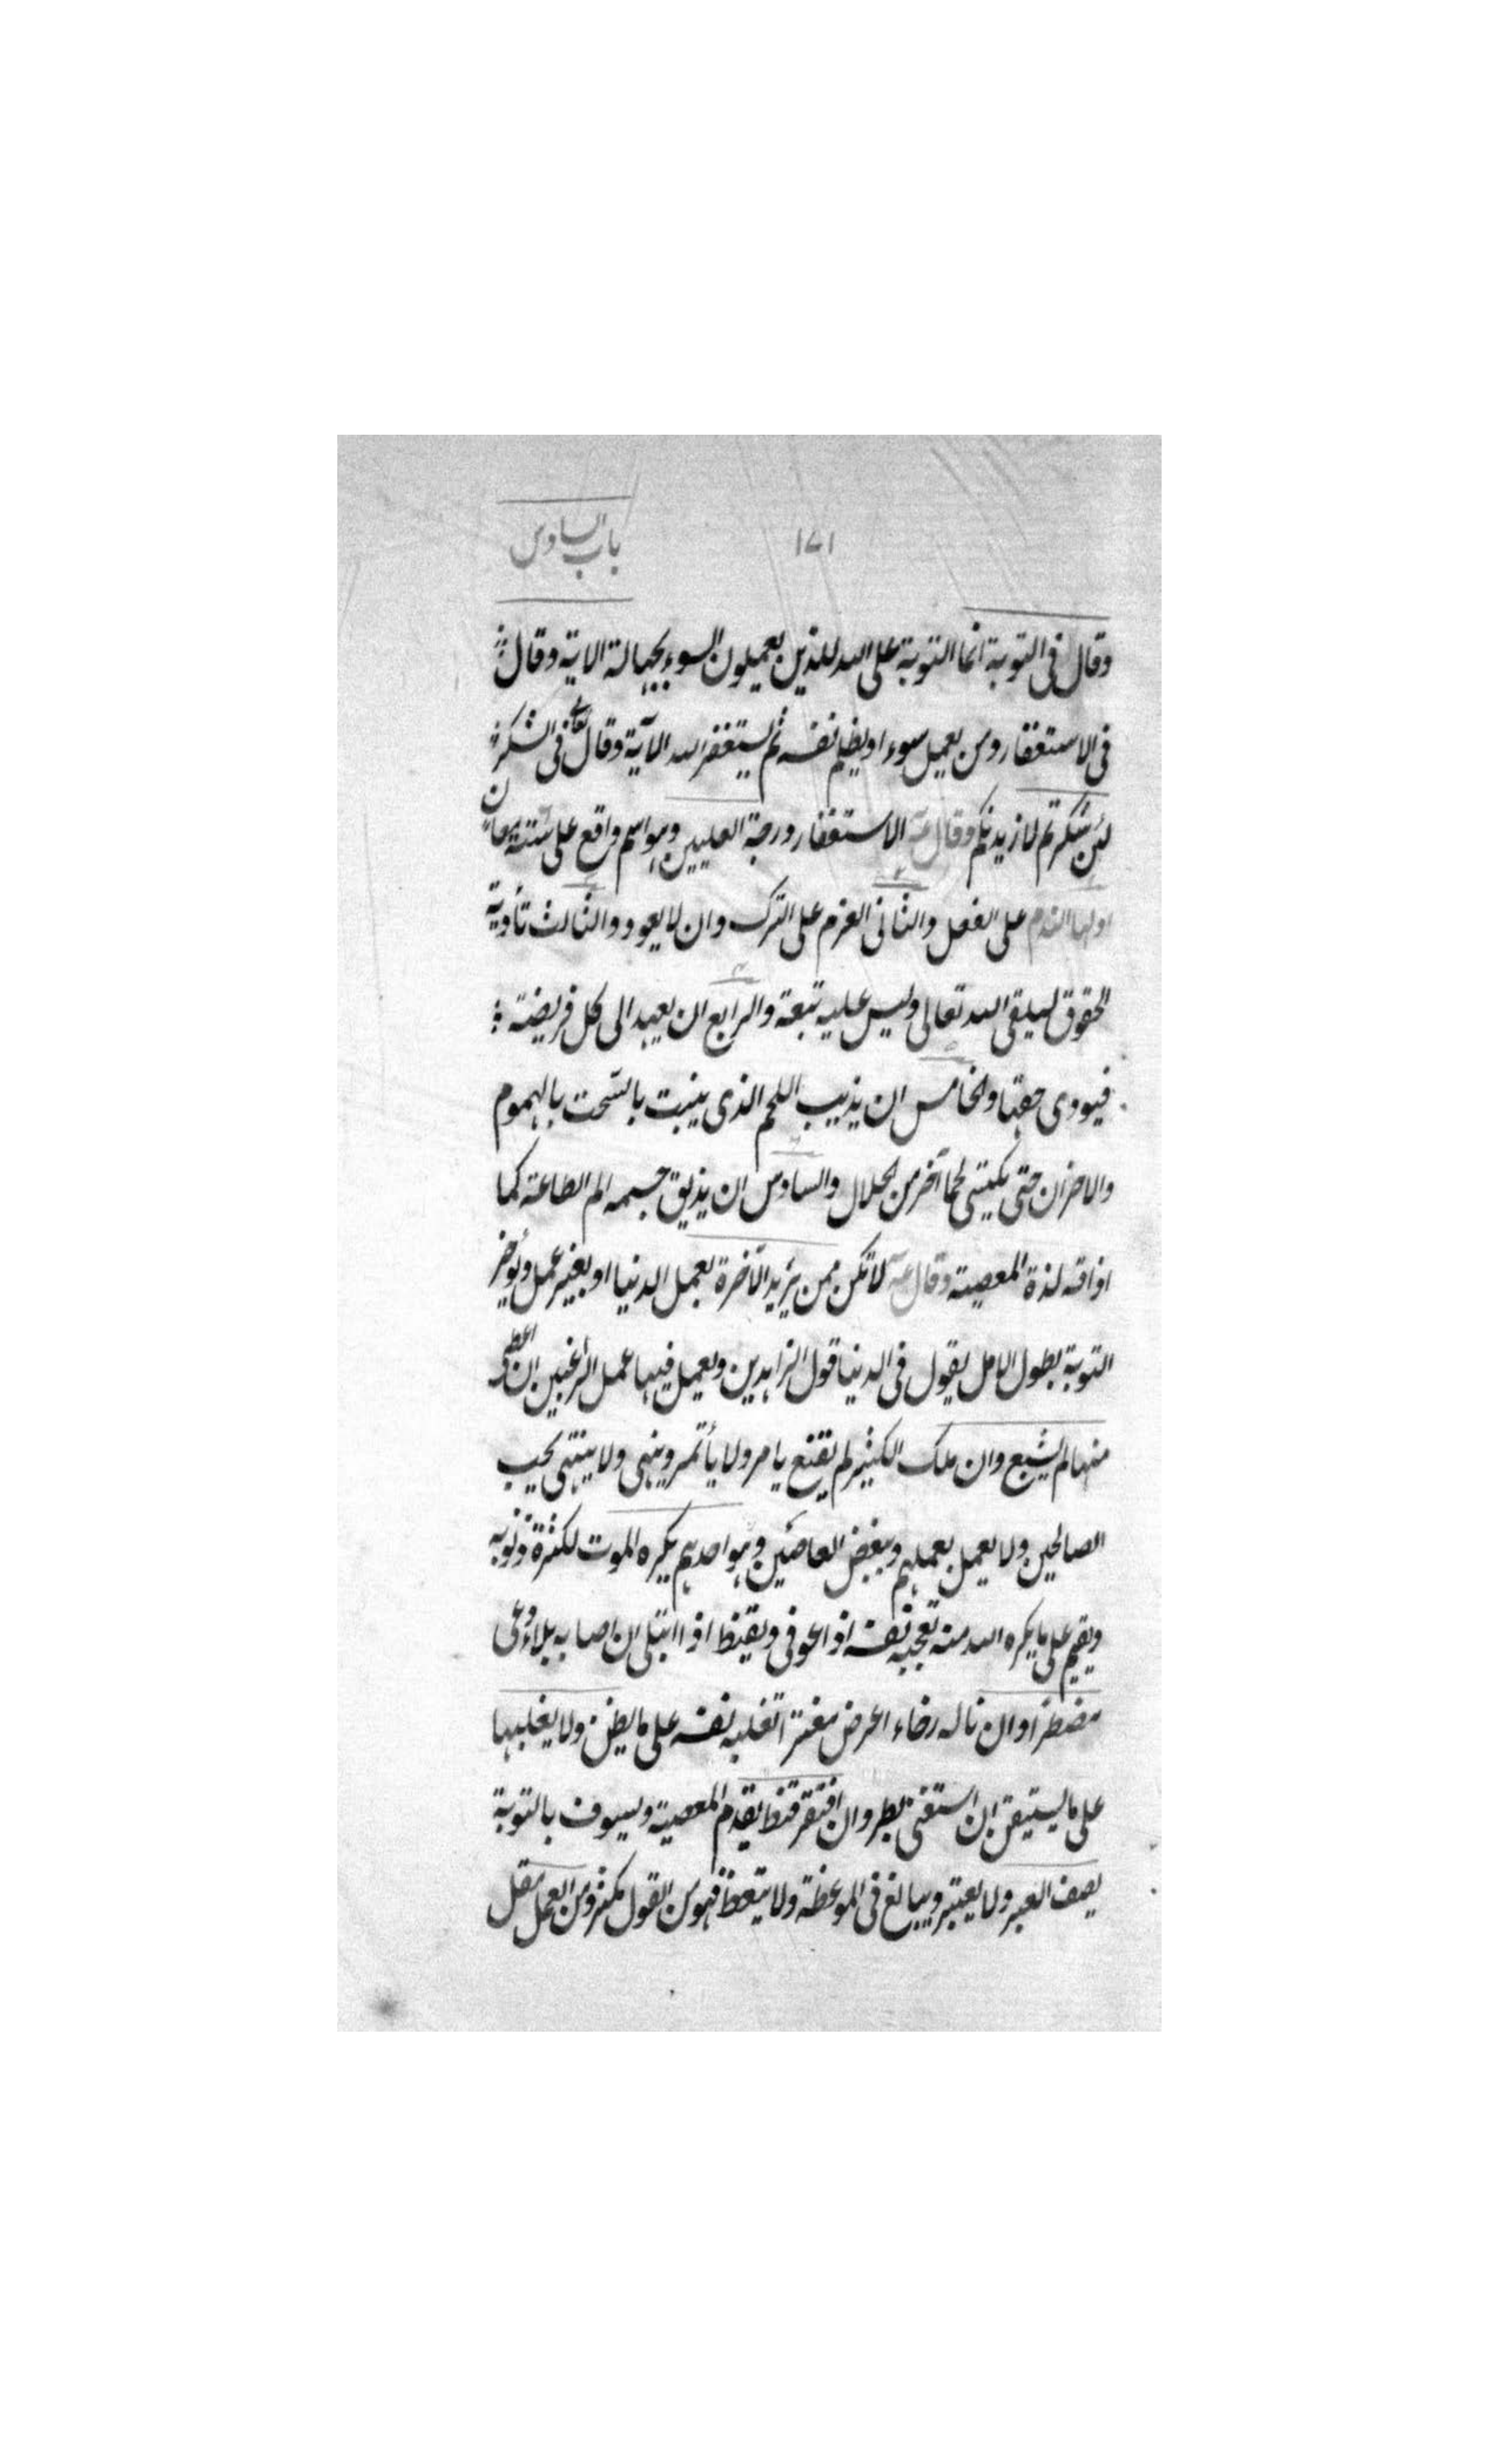 باب السادس
۱۷۱
وقال فى التوبة انما التوبة على الله للذين يعملون السوء بجهالة الاية وقال
فى الاستغفار ومن يعمل سوءا او يظلم نفسه ثم يستغفر الله الآية وقال تعالى فى الشكر
لئن شكرتم لازيدنكم وقال عـ الاستغفار درجة العليين وهو اسم واقع على ستة معان
اولها الندم على الفعل والثانى العزم على الترك وان لا يعود والثالث تأدية
الحقوق ليلقى الله تعالى وليس عليه تبعة والرابع ان يعيد الى كل فريضة
فيؤدى حقها والخامس ان يذيب اللحم الذى ينبت بالسّحت بالهموم
والاحزان حتى يكتسى لحما آخر من الحلال والسادس ان يذيق جسمه الم الطاعة كما
اذاقه لذة المعصية وقال عـ لا تكن ممن يريد الآخرة بعمل الدنيا او بغير عمل ويؤخر
التوبة بطول الامل يقول فى الدنيا قول الزاهدين ويعمل فيها عمل الراغبين ان اعطى
منها لم يشبع وان ملك الكثير لم يقنع يامر ولا يأتمر وينهى ولا ينتهى يحب
الصالحين ولا يعمل بعملهم ويبغض العاصين وهو احدهم يكره الموت لكثرة ذنوبه
ويقيم على ما يكره الله منه تعجبه نفسه اذا عوفى ويقنط اذا ابتلى ان اصابه بلاء دعى
مضطرا وان ناله رخاء اعرض مغترا تغلبه نفسه على ما يظن ولا يغلبها
على ما يستيقن ان استغنى بطر وان افتقر قنط يقدم المعصية ويسوف بالتوبة
يصف العبر ولا يعتبر ويبالغ فى الموعظة ولا يتعظ فهو من القول مكثر ومن العمل مقل